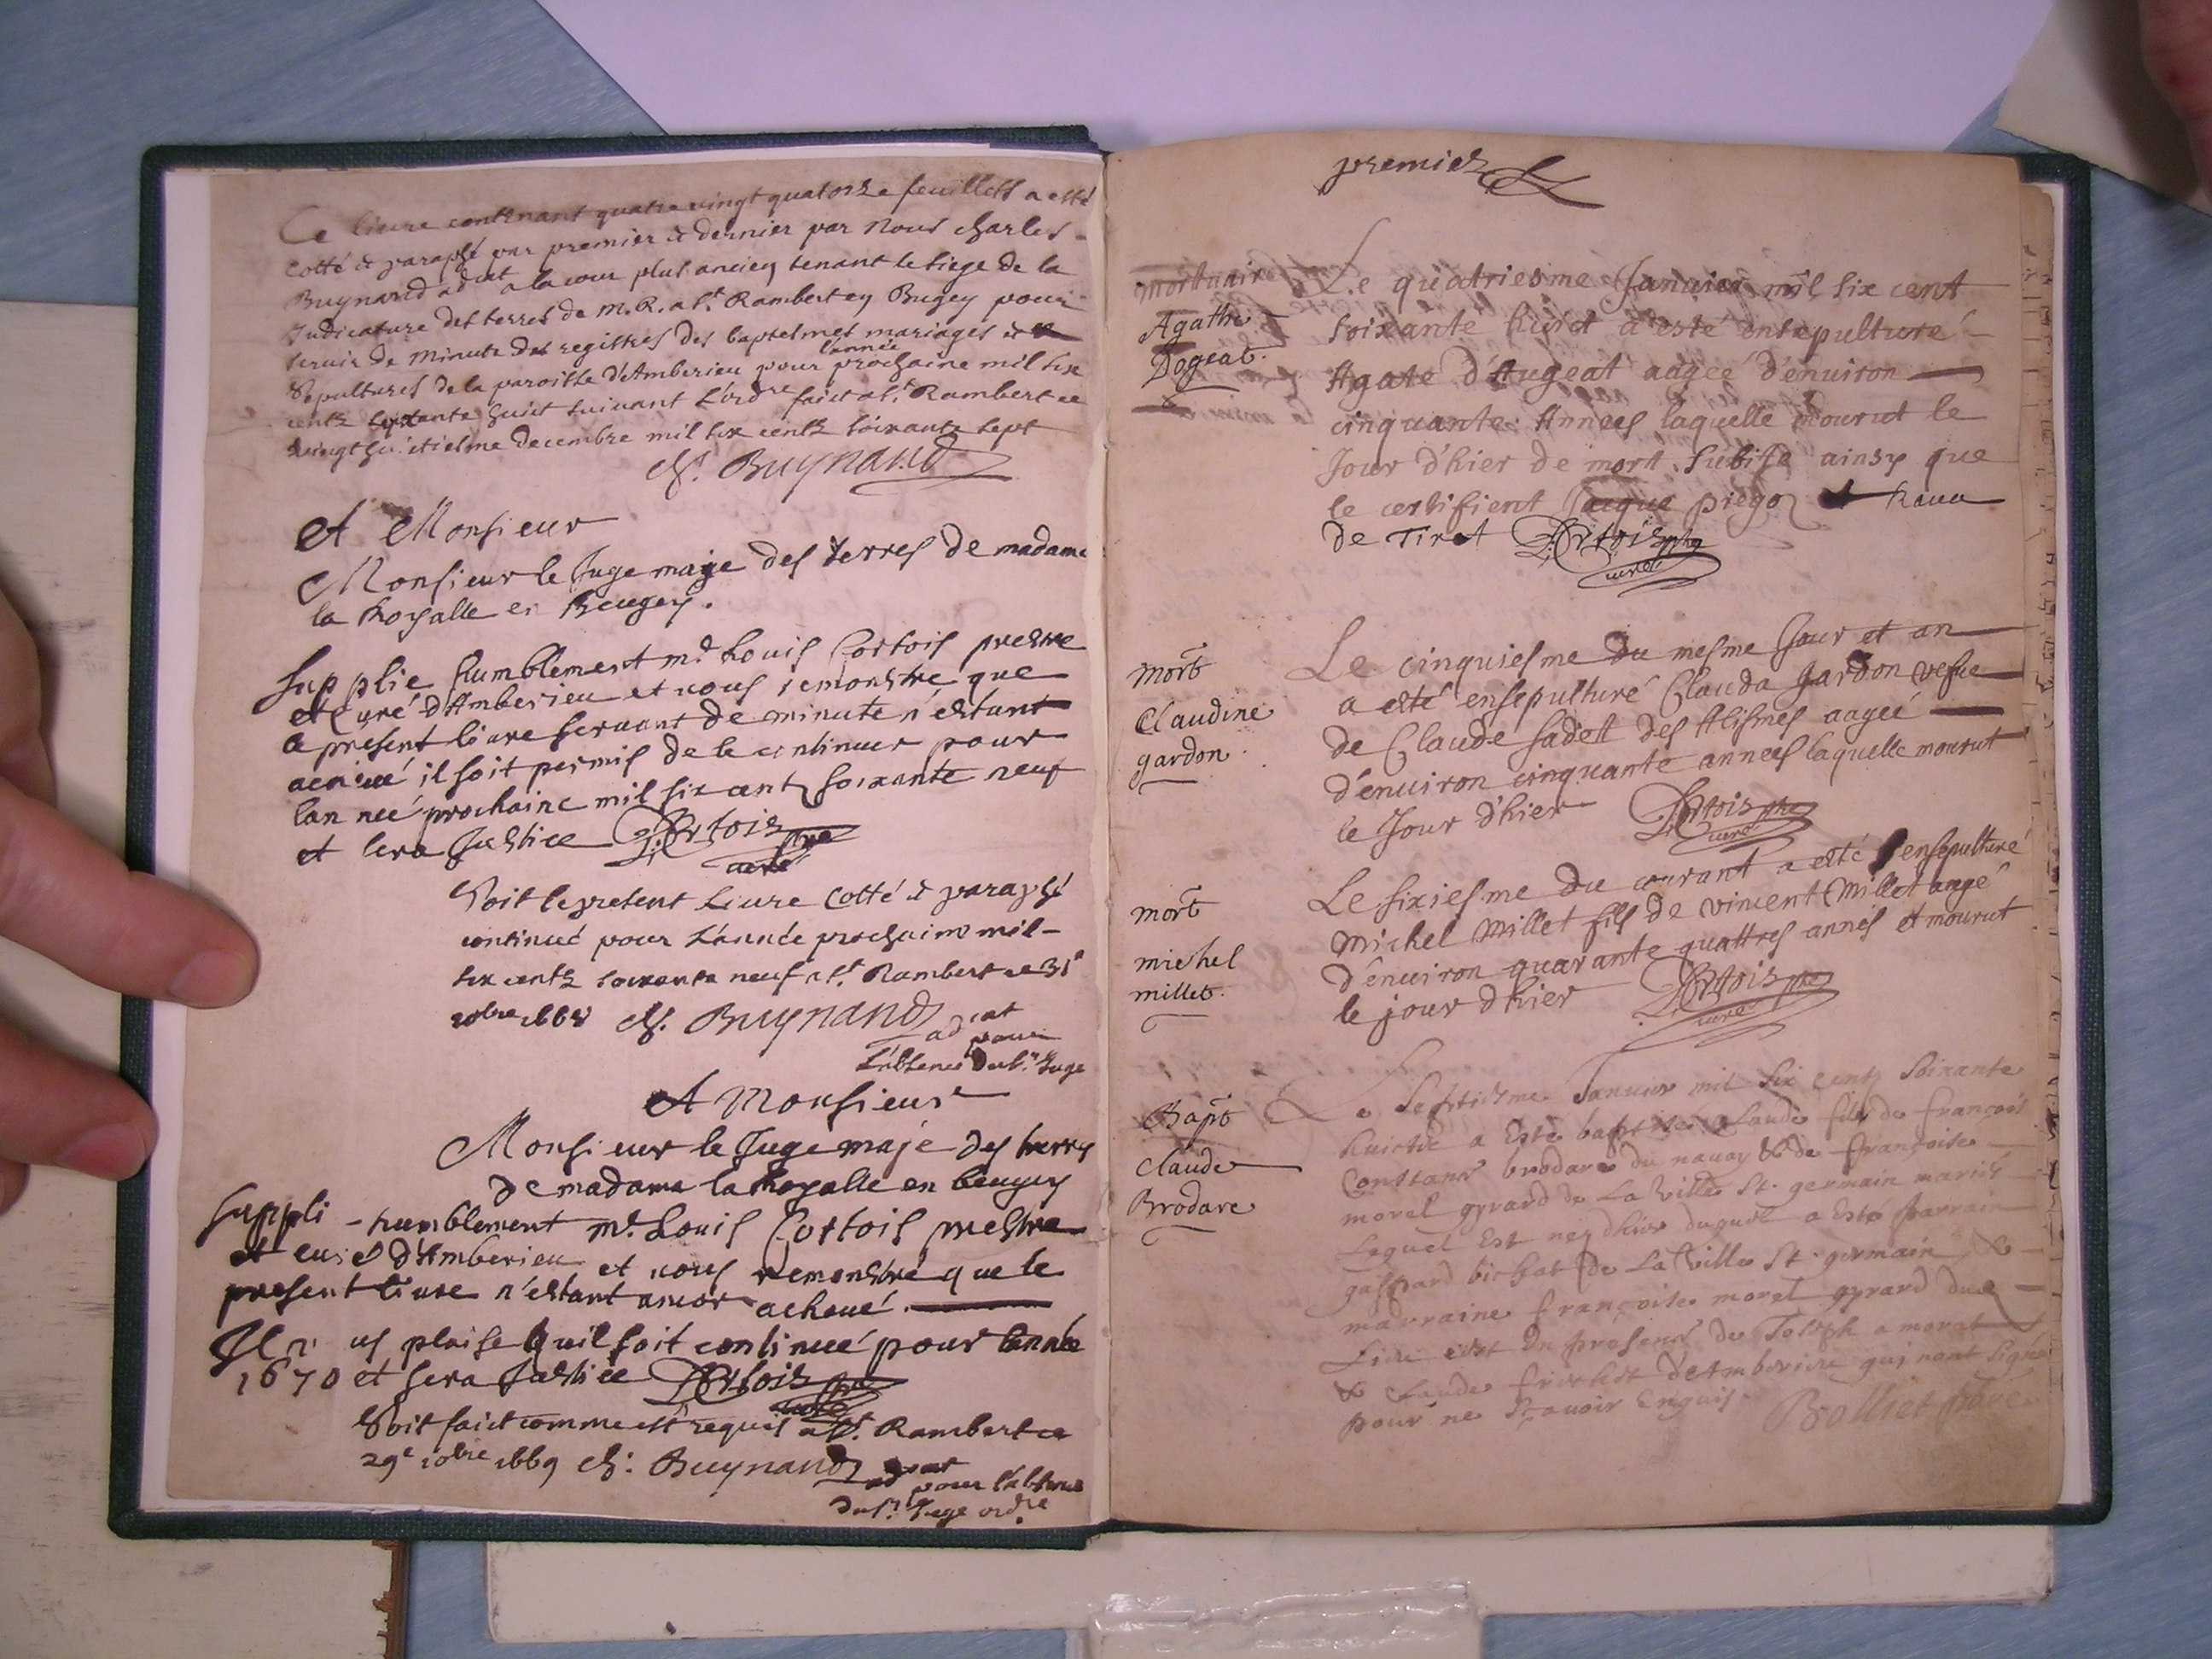 Ce liure contenant quatre vingt quatorze feuillets a esté
cotté & paraphé par premier & dernier par Nous Charles
Buynand adcat a la cour plus ancien tenant le siege de la
Judicature des terres de M. R. a St. Rambert en Bugey pour
seruir de minute des registres des baptesmes mariages &
Sepultures de la paroisse d'Amberieu pour l'année prochaine mil six
cents soixante huict suiuant L'ordre faict a St. Rambert ce
vingt huictiesme decembre mil six cents soixante sept
Ch. Buynand
A Monsieur
Monsieur le Juge maje des terres de madame
la Royalle en Beugey.
Supplie humblement mre Louis Cortois prestre
et Curé d'Amberieu et vous remonstre que
le présent liure seruant de minute n'estant
acheué il soit permis de le continuer pour
lannée prochaine mil six cent soixante neuf
et sera Justice L. Cortois pbre
curé
Soit le present Liure cotté & paraphé
continué pour L'année prochaine mil
six cents soixante neuf a St. Rambert ce 31e
xobre 1668 Ch. Buynand adcat
pour
L'absence du Sr. Juge
A Monsieur
Monsieur le Juge maje des terres
de madame la Royalle en beugey
Suppli humblement mre Louis Cortois prestre
et curé d'Amberieu et vous remonstre que le
present liure n'estant ancor acheué.
Il v us plaise quil soit continué pour lannée
1670 et sera Justice L. Cortois pbre
curé
Soit faict comme est requis a St. Rambert ce
29e 10bre 1669 Ch: Buynand adcat
pour l'absence
du Sr. Juge ordre
premier
mortuaire
Agathe
Dogeat.
Le quatriesme Januier mil six cent
soixante huict a esté ensepulturé
Agate d'Augeat aagée d'enuiron
cinquante Annees laquelle mourut le
Jour d'hier de mort subite ainsy que
le certifient Jacque piegoz
de Tiret L. Cortois pbre
curé
mort
Claudine
gardon
Le cinquiesme du mesme Jour et an
a esté ensepulturé Clauda gardon vefue
de Claude sadet des Alismes aageé
d'enuiron cinquante annees laquelle mourut
le Jour d'hier L. Cortois pbre
curé
mort
michel
millet.
Le sixiesme du courant a esté ensepulturé
Michel Millet fils de vincent Millet aagé
d'enuiron quarante quattres annés et mourut
le jour d'hier L. Cortois pbre
curé
Bapt
Claude
Brodare
Le septiesme Januier mil six cents soixante
huictz a Esté baptisé Claude fils de françois
Constant brodare du nauoy & de françoise
morel gyrard de La Ville St. germain mariés
Lequel Est ney dhier duquel a Esté parrain
gaspard bichat de La Ville St. germain &
marraine françoise morel gyrard du
Lieu en presence de Joseph a morat
& Claude de Amberieu qui nont signé
pour ne sçauoir Enquis. Bolliet pbre